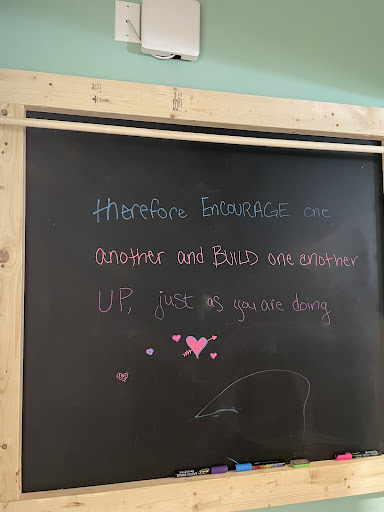 therefore ENCOURAGE one
another and BUILD one another
UP, just as you are doing